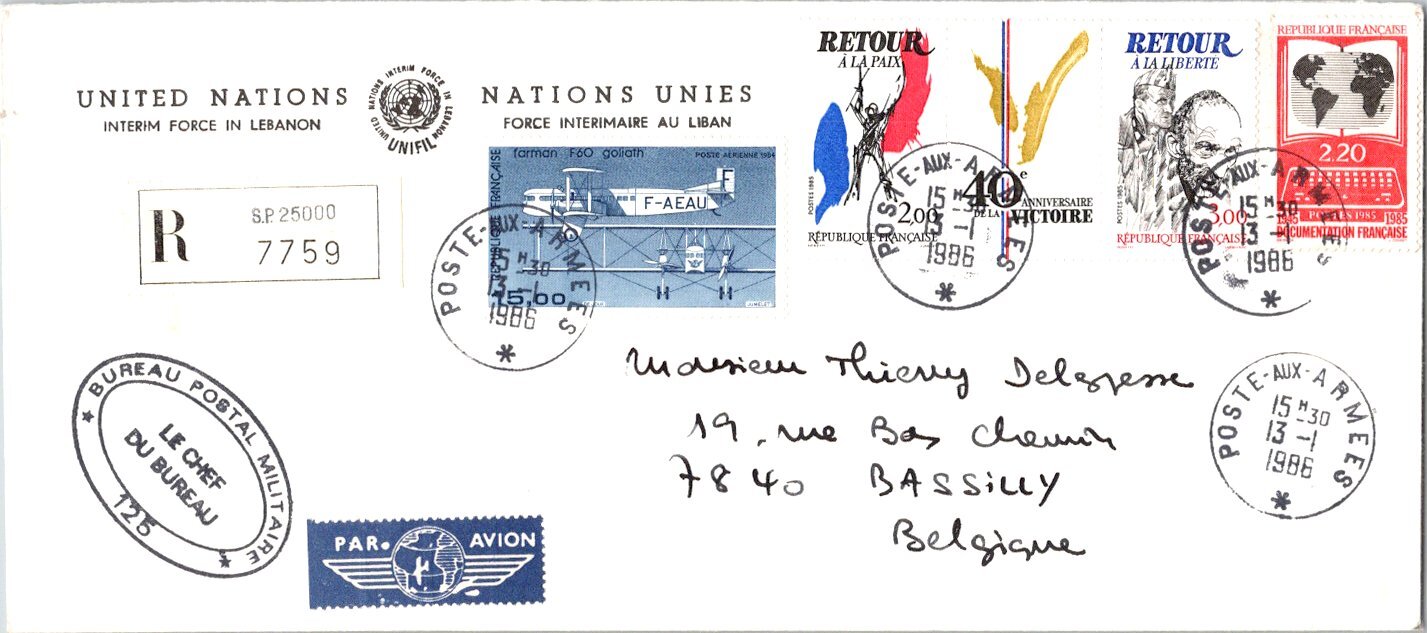 UNITED NATIONS
INTERIM FORCE IN LEBANON
UNITED NATIONS INTERIM FORCE IN LEBANON
UNIFIL
NATIONS UNIES
FORCE INTERIMAIRE AU LIBAN
R
S.P. 25000
7759
farman F60 goliath
POSTE AERIENNE 1984
RÉPUBLIQUE FRANÇAISE
F
F-AEAU
15,00
JUMELET
POSTE-AUX-ARMEES
15 H 30
13 -1
1986
RETOUR
À LA PAIX
POSTES 1985
2,00
RÉPUBLIQUE FRANÇAISE
40e
ANNIVERSAIRE
DE LA VICTOIRE
RETOUR
À LA LIBERTE
POSTES 1985
3,00
RÉPUBLIQUE FRANÇAISE
POSTE-AUX-ARMEES
15 H 30
13 -1
1986
REPUBLIQUE FRANÇAISE
2.20
POSTES 1985
1945 1985
DOCUMENTATION FRANÇAISE
POSTE-AUX-ARMEES
15 H 30
13 -1
1986
Monsieur Thierry Delagresse
19, rue Bas Chemin
7840 BASSiLLY
Belgique
POSTE-AUX-ARMEES
15 H 30
13 -1
1986
BUREAU POSTAL MILITAIRE
LE CHEF
DU BUREAU
125
PAR AVION